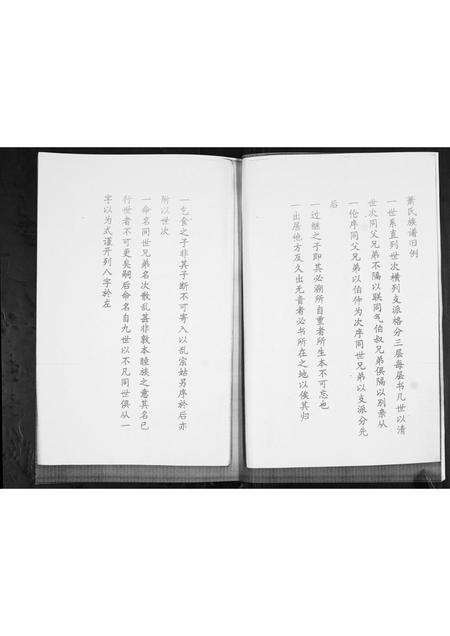 萧氏族谱旧例
一世系直列世次横列支派格分三层每层书几世以清
世次同父兄弟不隔以联同气伯叔兄弟俱隔以别亲从
一伦序同父兄弟以伯仲为次序同世兄弟以支派分先
后
一过继之子即其必溯所自重者所生本不可忘也
一出居他方及久出无音者必书所在之地以俟其归
一乞食之子非其子断不可寄入以乱宗姑另序於后亦
所以世次
一命名同世兄弟名次散乱甚非敦本睦族之意其名已
行世者不可更矣嗣后命名自九世以不凡同世俱从一
字以为式谨开列八字於左